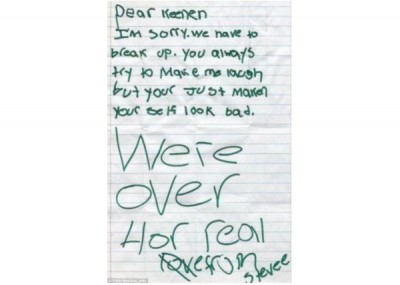 Dear Keenen
I'm sorry. we have to
break up. you always
try to make me laugh
but your Just maken
your self look bad.
We're
over
4or real
Love from
Stevee